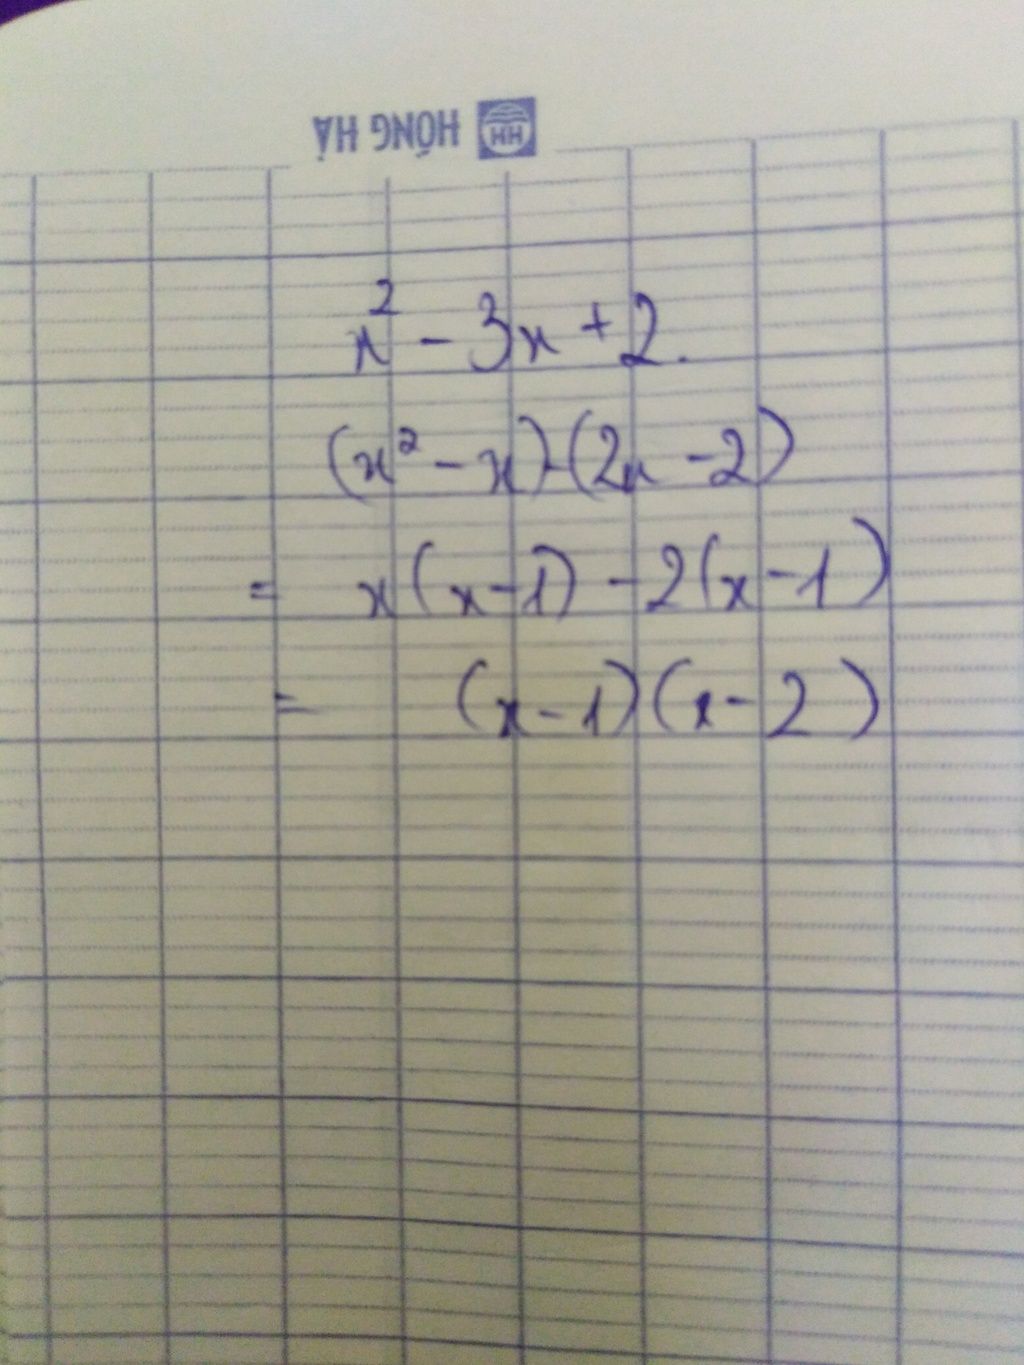 HỒNG HÀ HH
x² - 3x + 2.
(x² - x) - (2x - 2)
= x(x - 1) - 2(x - 1)
= (x - 1)(x - 2)